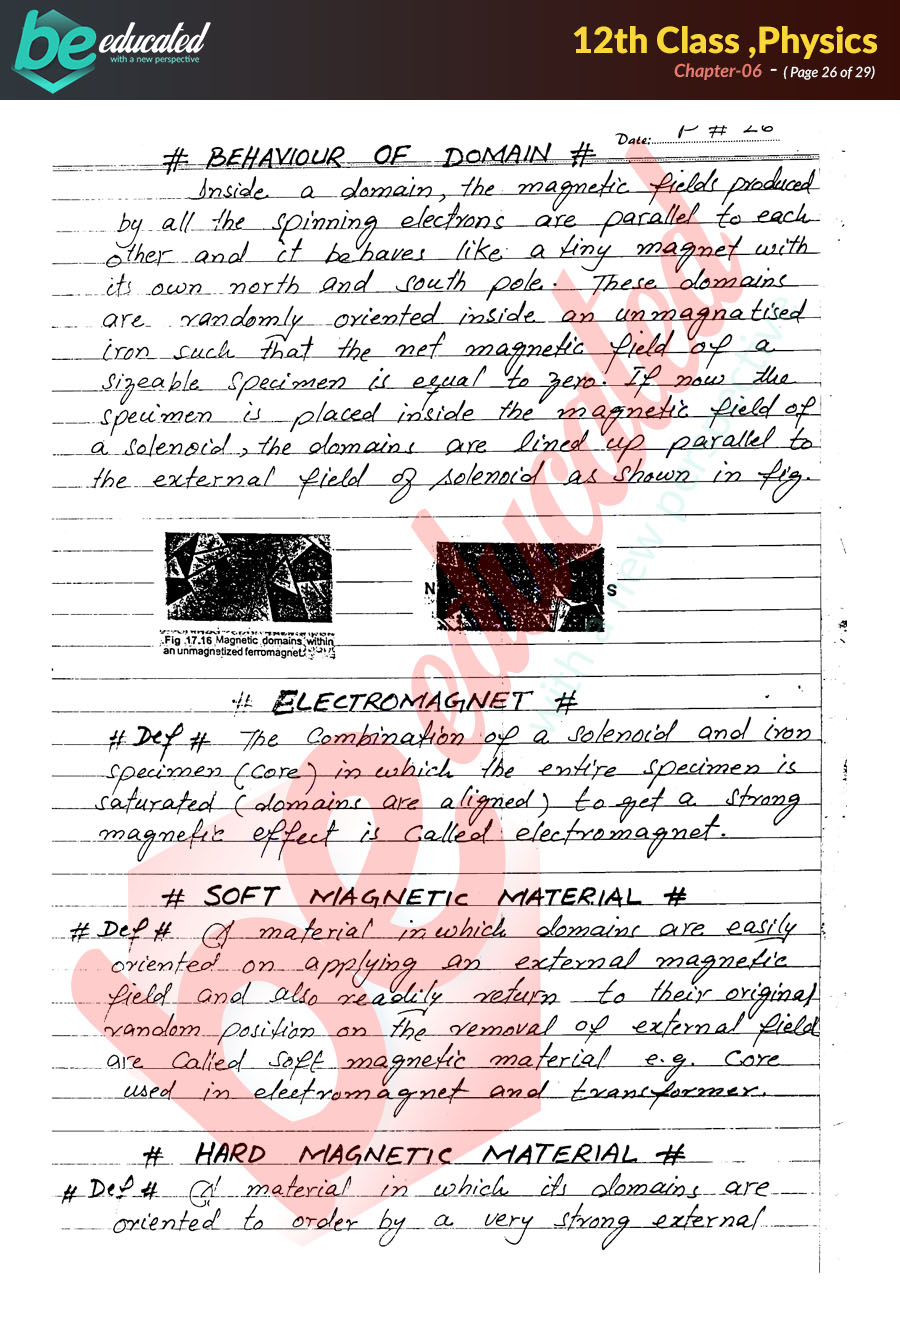 be educated
with a new perspective
12th Class ,Physics
Chapter-06 - ( Page 26 of 29)
Date: P # 26
# BEHAVIOUR OF DOMAIN #
Inside a domain, the magnetic fields produced
by all the spinning electrons are parallel to each
other and it behaves like a tiny magnet with
its own north and south pole. These domains
are randomly oriented inside an unmagnatised
iron such that the net magnetic field of a
sizeable specimen is equal to zero. If now the
specimen is placed inside the magnetic field of
a solenoid, the domains are lined up parallel to
the external field of solenoid as shown in fig.
N S
Fig 17.16 Magnetic domains within
an unmagnetized ferromagnet.
# ELECTROMAGNET #
# Def # The combination of a solenoid and iron
specimen (core) in which the entire specimen is
saturated (domains are aligned) to get a strong
magnetic effect is called electromagnet.
# SOFT MAGNETIC MATERIAL #
# Def # A material in which domains are easily
oriented on applying an external magnetic
field and also readily return to their original
random position on the removal of external field
are called soft magnetic material e.g. core
used in electromagnet and transformer.
# HARD MAGNETIC MATERIAL #
# Def # A material in which its domains are
oriented to order by a very strong external
be educated
with a new perspective